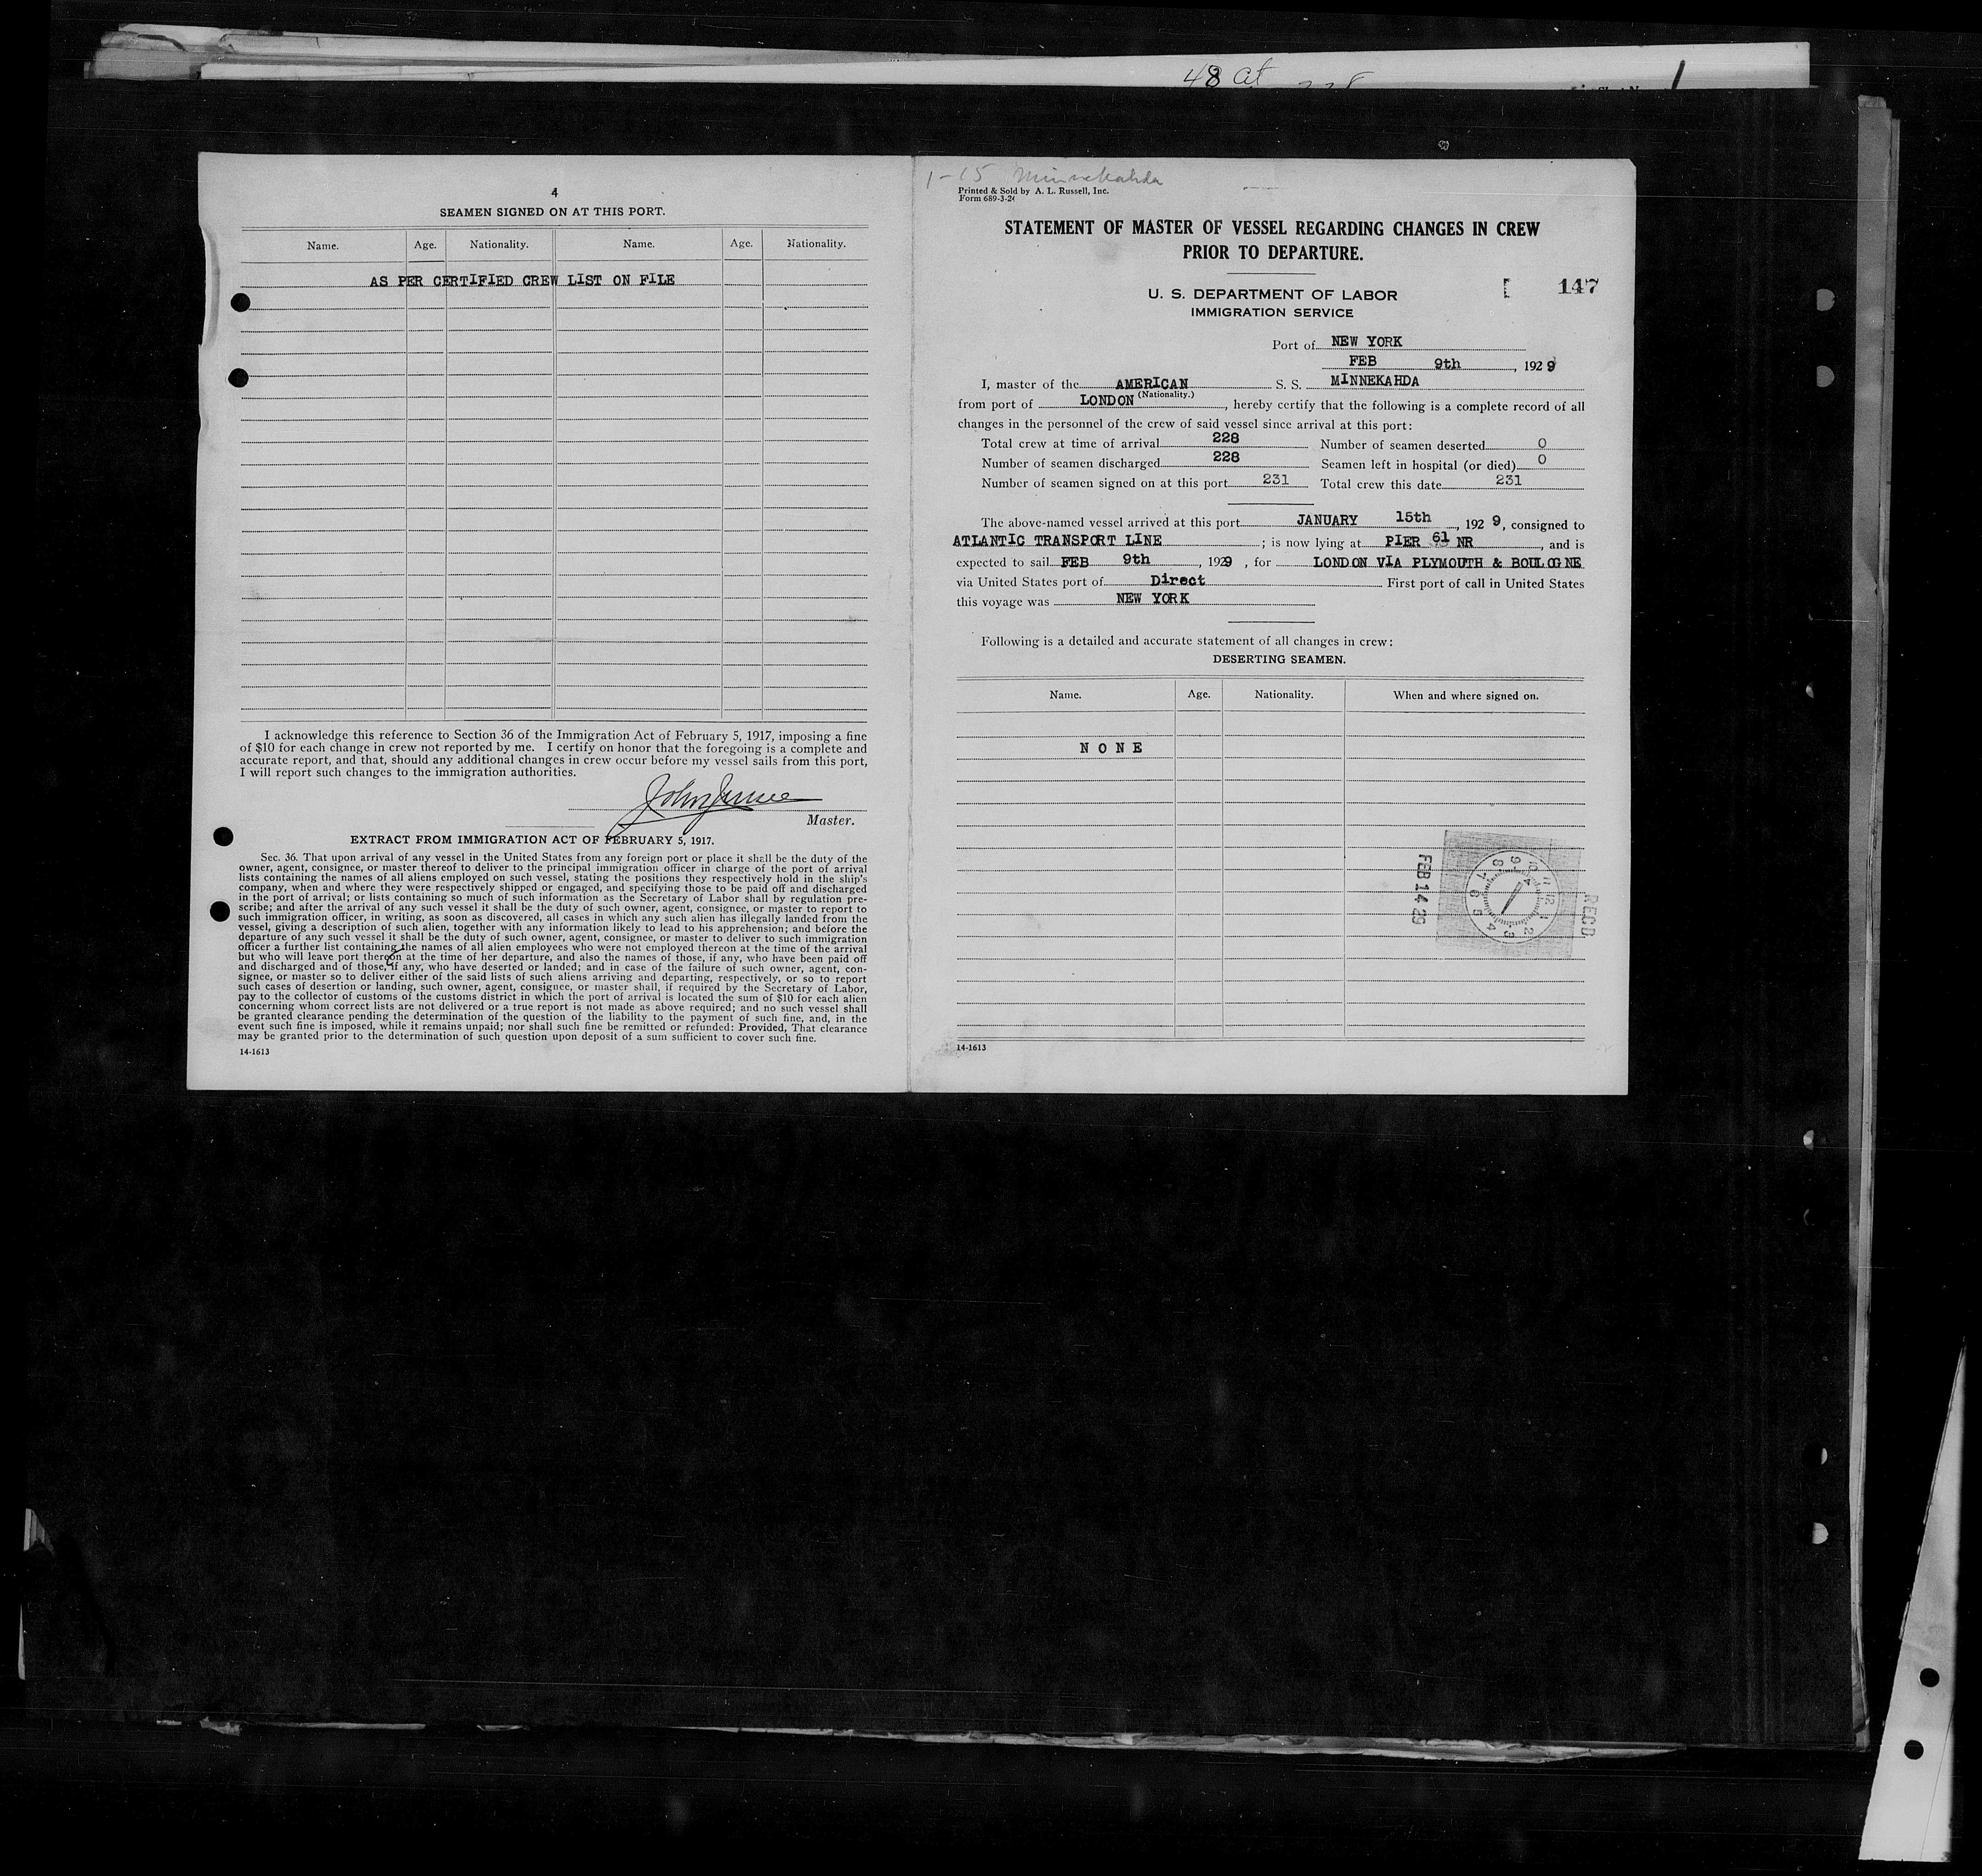 48 at
1
4
SEAMEN SIGNED ON AT THIS PORT.
Name. Age. Nationality. Name. Age. Nationality.
AS PER CERTIFIED CREW LIST ON FILE
I acknowledge this reference to Section 36 of the Immigration Act of February 5, 1917, imposing a fine
of $10 for each change in crew not reported by me. I certify on honor that the foregoing is a complete and
accurate report, and that, should any additional changes in crew occur before my vessel sails from this port,
I will report such changes to the immigration authorities.
John
Master.
EXTRACT FROM IMMIGRATION ACT OF FEBRUARY 5, 1917.
Sec. 36. That upon arrival of any vessel in the United States from any foreign port or place it shall be the duty of the
owner, agent, consignee, or master thereof to deliver to the principal immigration officer in charge of the port of arrival
lists containing the names of all aliens employed on such vessel, stating the positions they respectively hold in the ship's
company, when and where they were respectively shipped or engaged, and specifying those to be paid off and discharged
in the port of arrival; or lists containing so much of such information as the Secretary of Labor shall by regulation pre-
scribe; and after the arrival of any such vessel it shall be the duty of such owner, agent, consignee, or master to report to
such immigration officer, in writing, as soon as discovered, all cases in which any such alien has illegally landed from the
vessel, giving a description of such alien, together with any information likely to lead to his apprehension; and before the
departure of any such vessel it shall be the duty of such owner, agent, consignee, or master to deliver to such immigration
officer a further list containing the names of all alien employees who were not employed thereon at the time of the arrival
but who will leave port thereon at the time of her departure, and also the names of those, if any, who have been paid off
and discharged and of those, if any, who have deserted or landed; and in case of the failure of such owner, agent, con-
signee, or master so to deliver either of the said lists of such aliens arriving and departing, respectively, or so to report
such cases of desertion or landing, such owner, agent, consignee, or master shall, if required by the Secretary of Labor,
pay to the collector of customs of the customs district in which the port of arrival is located the sum of $10 for each alien
concerning whom correct lists are not delivered or a true report is not made as above required; and no such vessel shall
be granted clearance pending the determination of the question of the liability to the payment of such fine, and, in the
event such fine is imposed, while it remains unpaid; nor shall such fine be remitted or refunded: Provided, That clearance
may be granted prior to the determination of such question upon deposit of a sum sufficient to cover such fine.
14-1613
1-15 Minnekahda
Printed & Sold by A. L. Russell, Inc.
Form 689-3-24
STATEMENT OF MASTER OF VESSEL REGARDING CHANGES IN CREW
PRIOR TO DEPARTURE.
U. S. DEPARTMENT OF LABOR
IMMIGRATION SERVICE
[ 147
Port of NEW YORK
FEB 9th, 1929
I, master of the AMERICAN S. S. MINNEKAHDA
(Nationality.)
from port of LONDON, hereby certify that the following is a complete record of all
changes in the personnel of the crew of said vessel since arrival at this port:
Total crew at time of arrival 228 Number of seamen deserted 0
Number of seamen discharged 228 Seamen left in hospital (or died) 0
Number of seamen signed on at this port 231 Total crew this date 231
The above-named vessel arrived at this port JANUARY 15th, 1929, consigned to
ATLANTIC TRANSPORT LINE; is now lying at PIER 61 NR, and is
expected to sail FEB 9th, 1929, for LONDON VIA PLYMOUTH & BOULOGNE
via United States port of Direct First port of call in United States
this voyage was NEW YORK
Following is a detailed and accurate statement of all changes in crew:
DESERTING SEAMEN.
Name. Age. Nationality. When and where signed on.
NONE
REC'D
12 1 2 3 4 5 6 7 8 9 10 11
FEB 14 29
14-1613